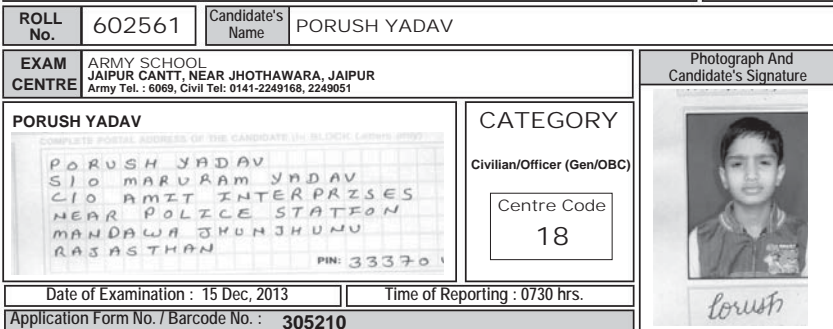 ROLL No.
602561
Candidate's Name
PORUSH YADAV
EXAM CENTRE
ARMY SCHOOL
JAIPUR CANTT, NEAR JHOTHAWARA, JAIPUR
Army Tel. : 6069, Civil Tel: 0141-2249168, 2249051
Photograph And
Candidate's Signature
PORUSH YADAV
COMPLETE POSTAL ADDRESS OF THE CANDIDATE (In BLOCK Letters only)
PORUSH YADAV
S/O MARURAM YADAV
C/O AMIT INTERPRIZSES
NEAR POLICE STATION
MANDAWA JHUNJHUNU
RAJASTHAN
PIN: 33370
CATEGORY
Civilian/Officer (Gen/OBC)
Centre Code
18
Porush
Date of Examination : 15 Dec, 2013
Time of Reporting : 0730 hrs.
Application Form No. / Barcode No. : 305210